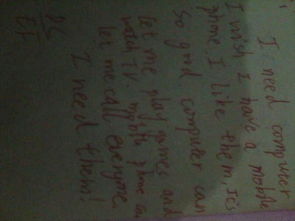 I need computer
I wish I have a mobile
phone. I like them. It's
So good computer can
let me play games and
watch TV. mobile phone can
let me call everyone.
I need them!